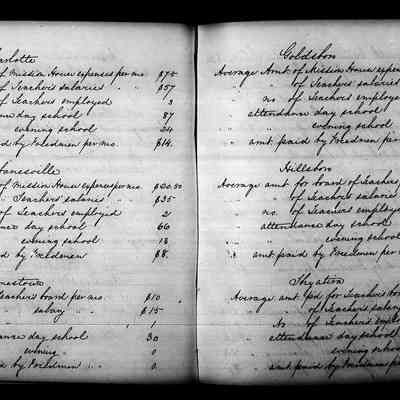 arlotte
of Mission House expenses per mo. $75
of Teacher's salaries " " $57
of Teachers employed 3
ance day school 87
evening school 24
d by Freedmen per mo. $14.
anesville
of Mission House expenses per mo. $20.50
" Teachers salaries " $35
of Teachers employed 2
nce day school 66
evening school 18
d by Freedmen $8.
mestown
Teachers board per mo $10
" salary " " $15
" " 1
ance day school 30
evening " 0
d by Freedmen " " 0
Goldsboro
Average Amt. of Mission House expen
" " of Teachers salaries
" no. of Teachers employe
" attendance day school
" " evening school
" amt paid by Freedmen per
Hillsboro
Average amt. for board of Teachers
" " of Teachers salarie
" no. of Teachers employe
" attendance day school
" " evening school
" amt paid by Freedmen per
Thyatira
Average amt. pd for Teachers bo
" " of Teachers salar
" No. of Teachers emp
" attendance day school
" " evening school
" amt paid by Freedmen per